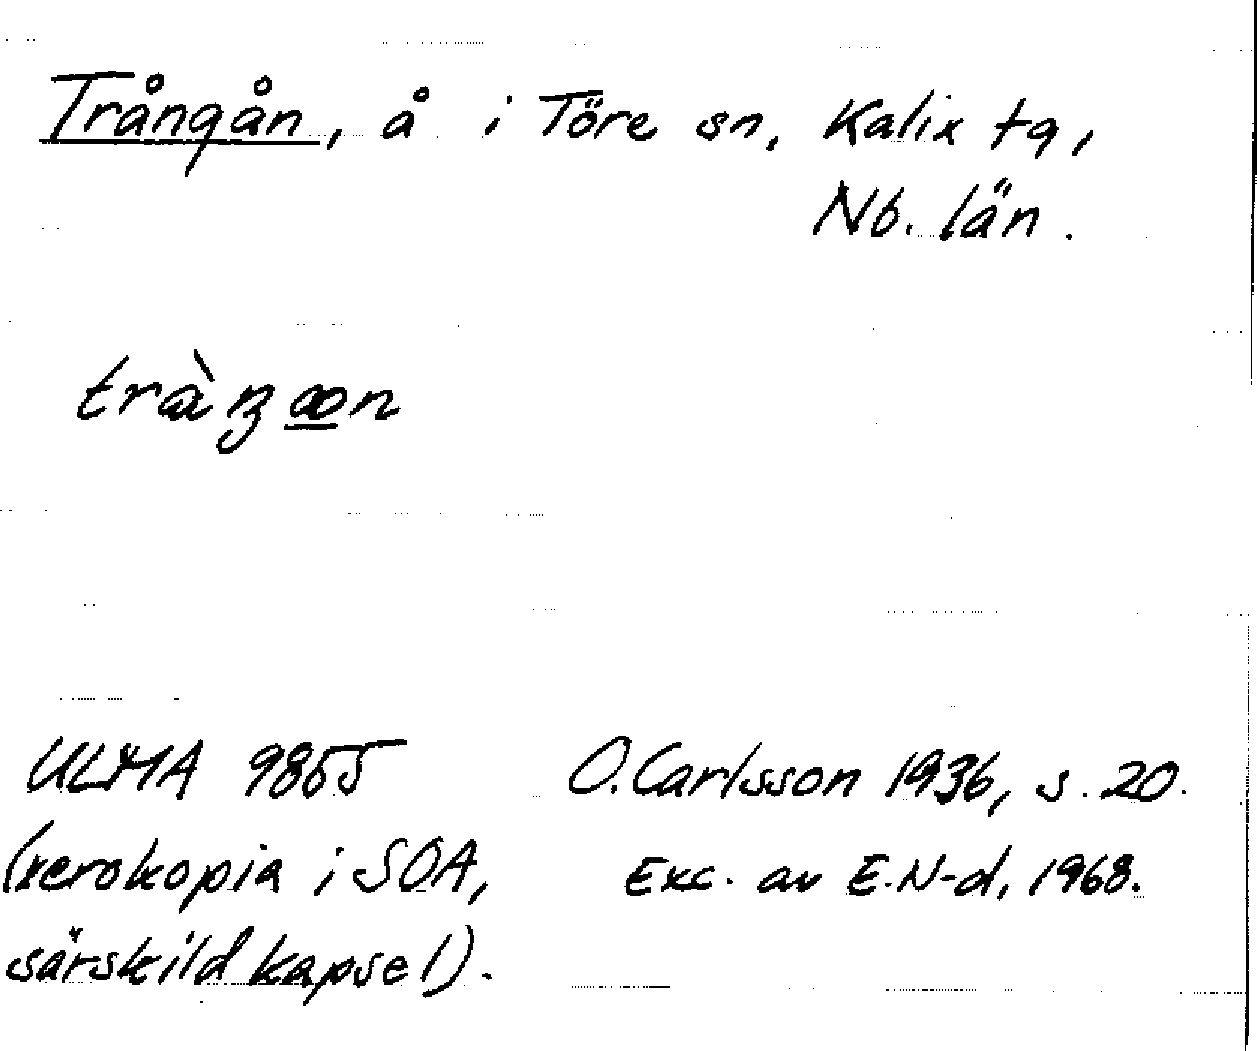 Trångån, å i Töre sn, Kalix tg,
Nb. län.
ULMA 9865 O. Carlsson 1936, s. 20.
(xerokopia i SOA, Exc. av E.N-d, 1968.
särskild kapsel).